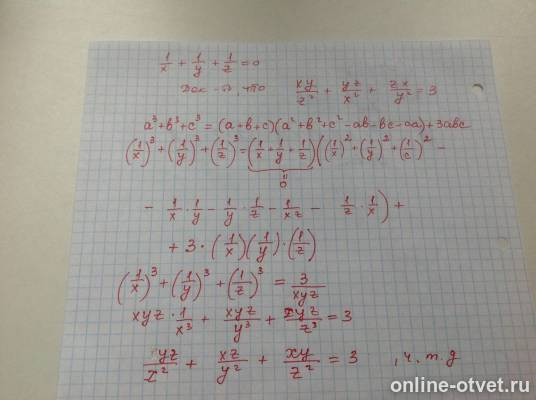 1/x + 1/y + 1/z = 0
Док-ть, что xy/z² + yz/x² + zx/y² = 3
a³ + b³ + c³ = (a+b+c)(a² + b² + c² - ab - bc - aa) + 3abc
(1/x)³ + (1/y)³ + (1/z)³ = (1/x + 1/y + 1/z)((1/x)² + (1/y)² + (1/c)² -
=0
- 1/x · 1/y - 1/y · 1/z - 1/xz - 1/z · 1/x) +
+ 3 · (1/x)(1/y) · (1/z)
(1/x)³ + (1/y)³ + (1/z)³ = 3/xyz
xyz · 1/x³ + xyz/y³ + xyz/z³ = 3
yz/x² + xz/y² + xy/z² = 3 , ч.т.д
online-otvet.ru